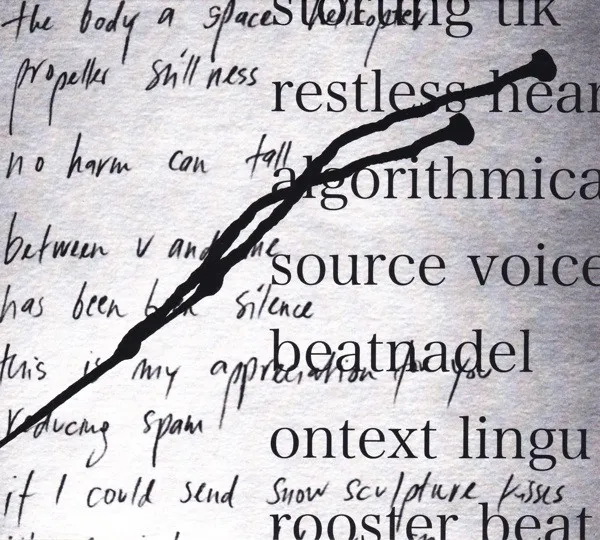 the body a space helicopter
propeller stillness
no harm can fall
between v and me
has been silence
this is my appreciation for you
reducing spam
if I could send snow sculpture kisses
tik
restless hear
algorithmica
source voice
beatnadel
ontext lingu
rooster beat